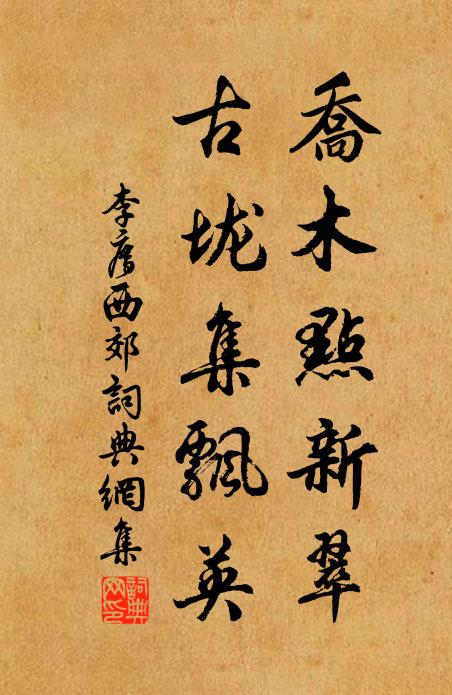 喬木點新翠
古垅集飄英
李廌西郊詞典網集
詞典
网印